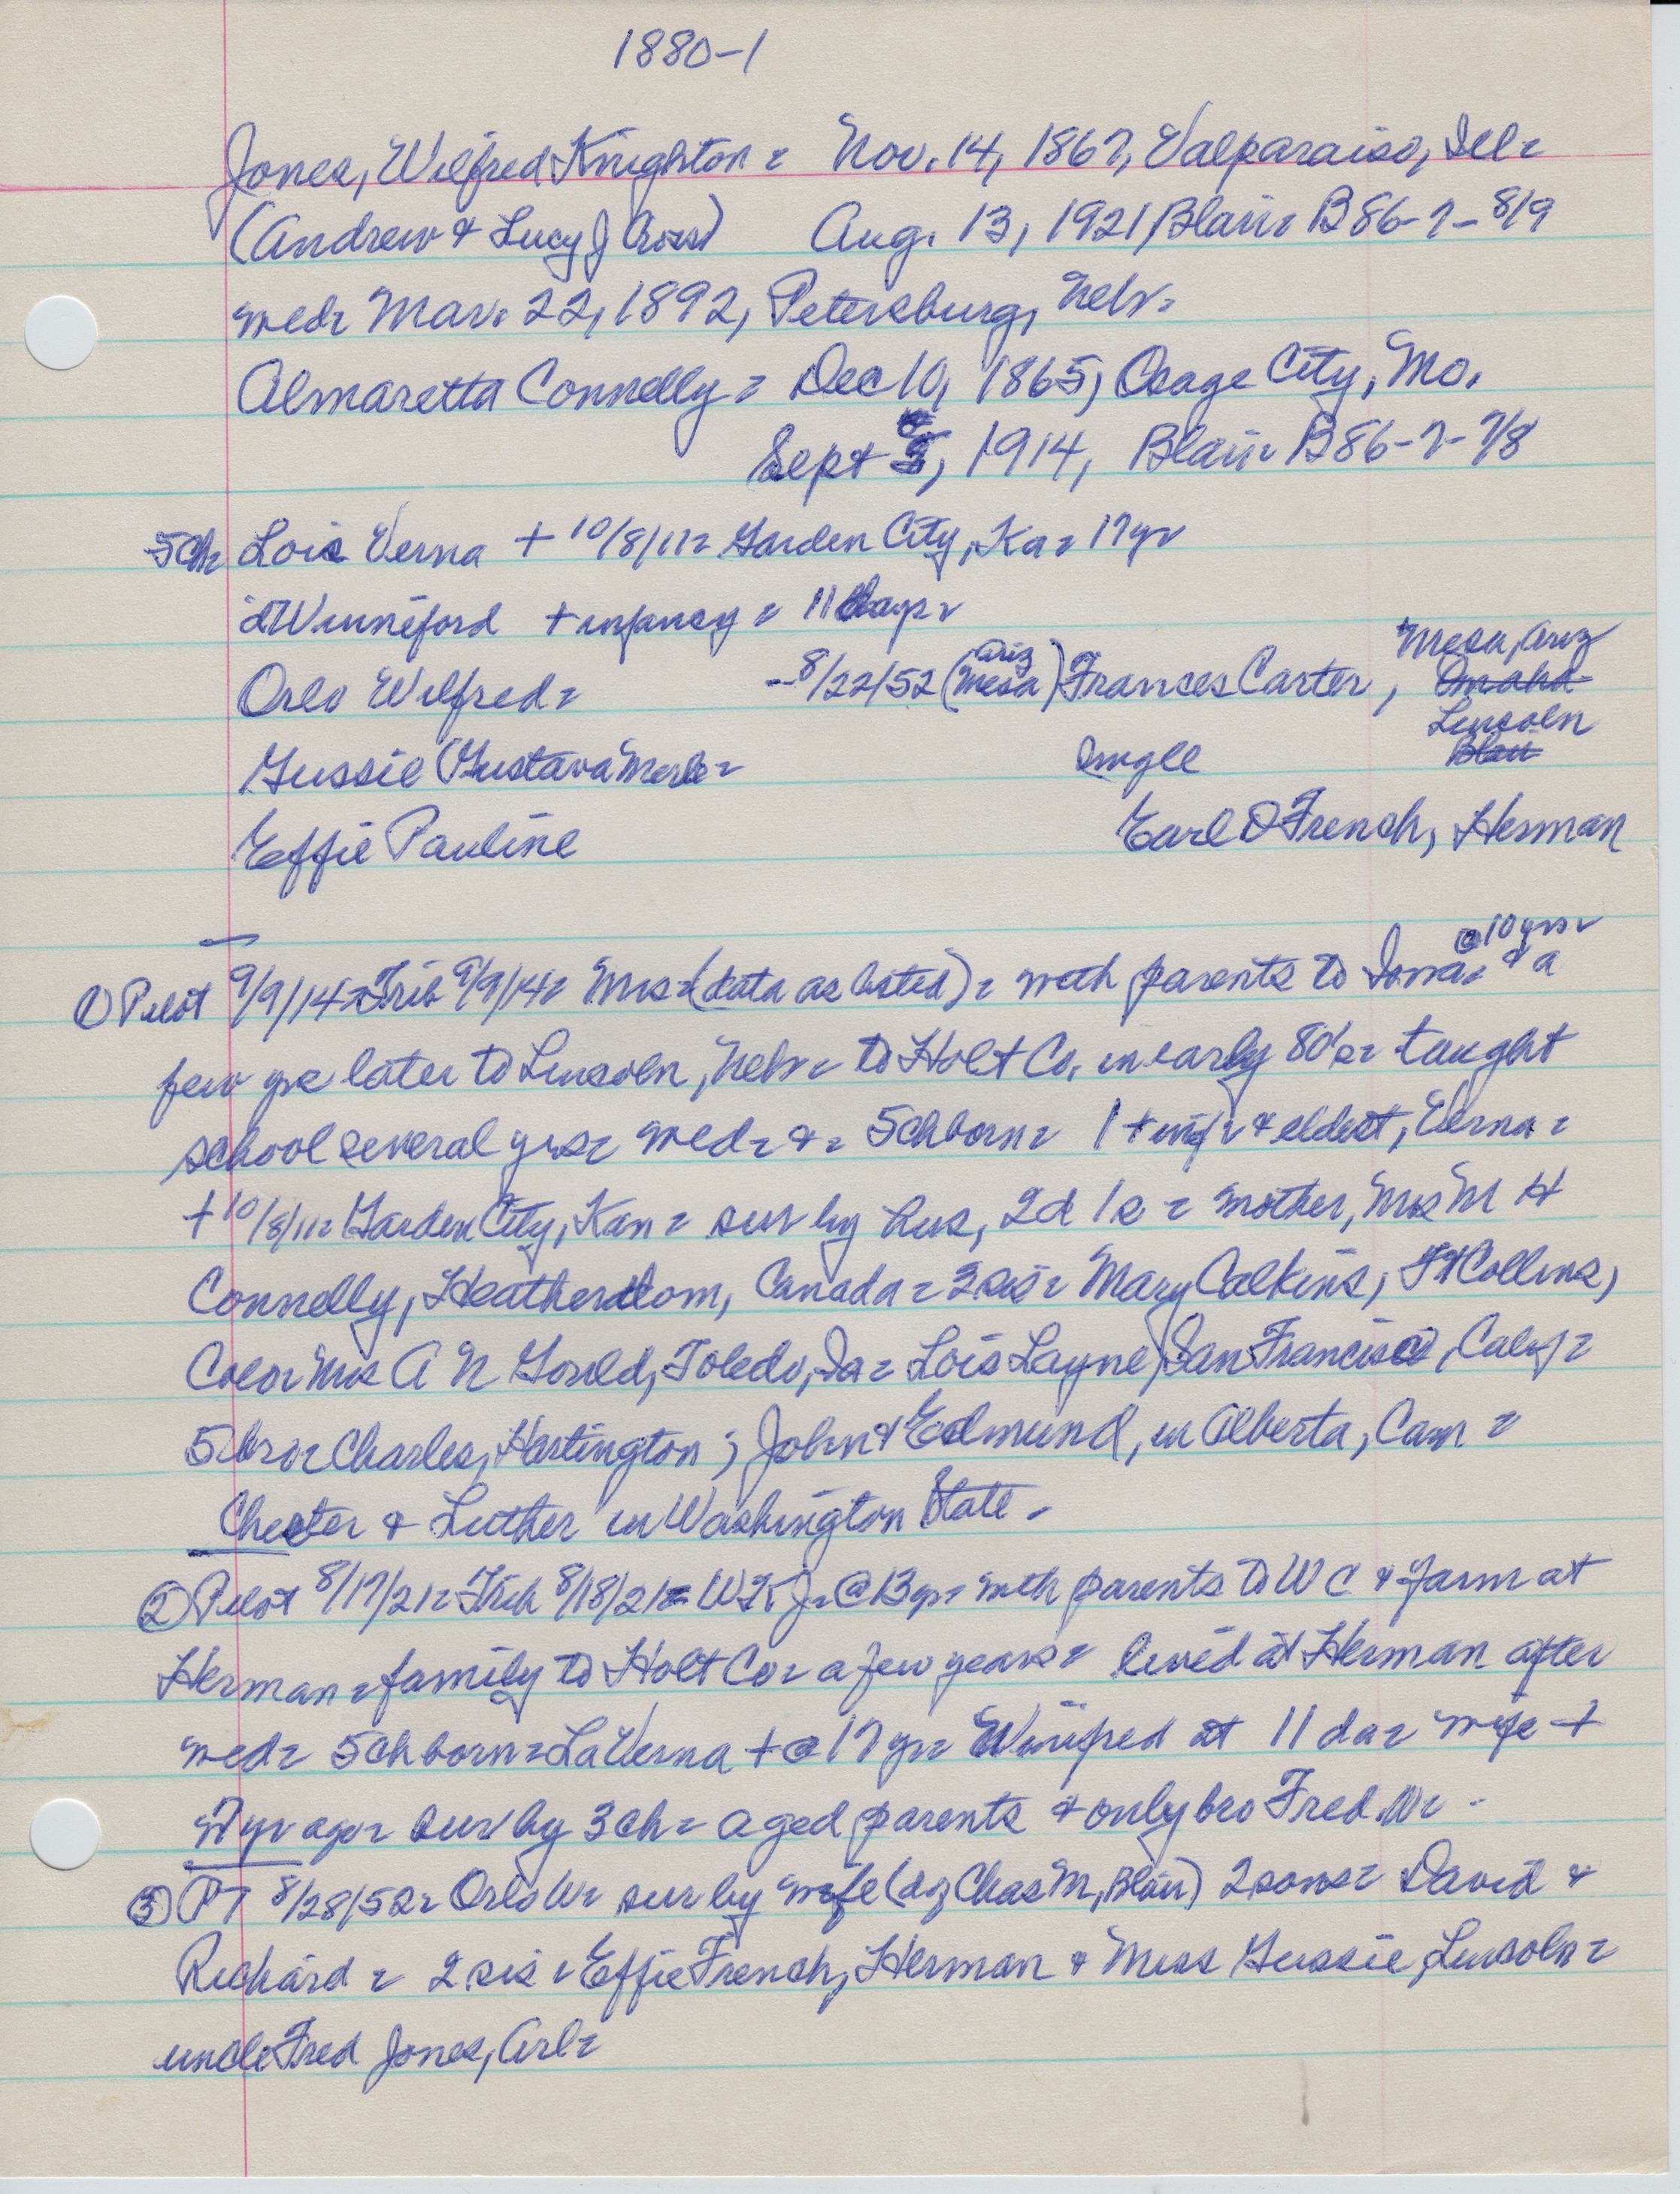 1880-1
Jones, Wilfred Knighton = Nov. 14, 1867, Valparaiso, Ill =
(Andrew & Lucy J Cross) Aug. 13, 1921, Blair = B86-7-8/9
wed = Mar. 22, 1892, Petersburg, Nebr =
Almaretta Connelly = Dec 10, 1865, Osage City, Mo.
Sept 5, 1914, Blair = B86-7-7/8
5ch = Lois Verna + 10/8/11 = Garden City, Ka = 17yr
Winneford + infancy = 11 days =
Orlo Wilfred = -8/22/52 (Mesa Ariz) Frances Carter, Mesa, Ariz Omaha
Gussie (Gustava Merle = Single Lincoln Blair
Effie Pauline Earl O French, Herman
① Pilot 9/9/14 = Trib 9/9/14 = Mrs = (data as listed) = with parents to Iowa = @ 10yrs = & a
few yrs later to Lincoln, Nebr = to Holt Co. in early 80's = taught
school several yrs = wed = & = 5ch born = 1 + inf = & eldest, Verna =
+ 10/8/11 = Garden City, Kan = sur by hus, 2d 1s = mother, Mrs M H
Connelly, Heatherdom, Canada = 3 sis = Mary Calkins, Ft Collins,
Colo = Mrs A N Gould, Toledo, Ia = Lois Layne, San Francisco, Calif =
5 bro = Charles, Hartington; John & Edmund, in Alberta, Can =
Chester & Luther in Washington State -
② Pilot 8/17/21 = Trib 8/18/21 = W K J = @ 13yr = with parents to W C & farm at
Herman = family to Holt Co = a few years = lived at Herman after
wed = 5ch born = LaVerna + @ 17yr = Winifred at 11 da = wife +
7 yr ago = sur by 3 ch = aged parents & only bro Fred W = -
③ PT 8/28/52 = Orlo W = sur by wife (dg Chas M, Blair) 2 sons = David &
Richard = 2 sis = Effie French, Herman & Miss Gussie, Lincoln =
uncle Fred Jones, Arl =